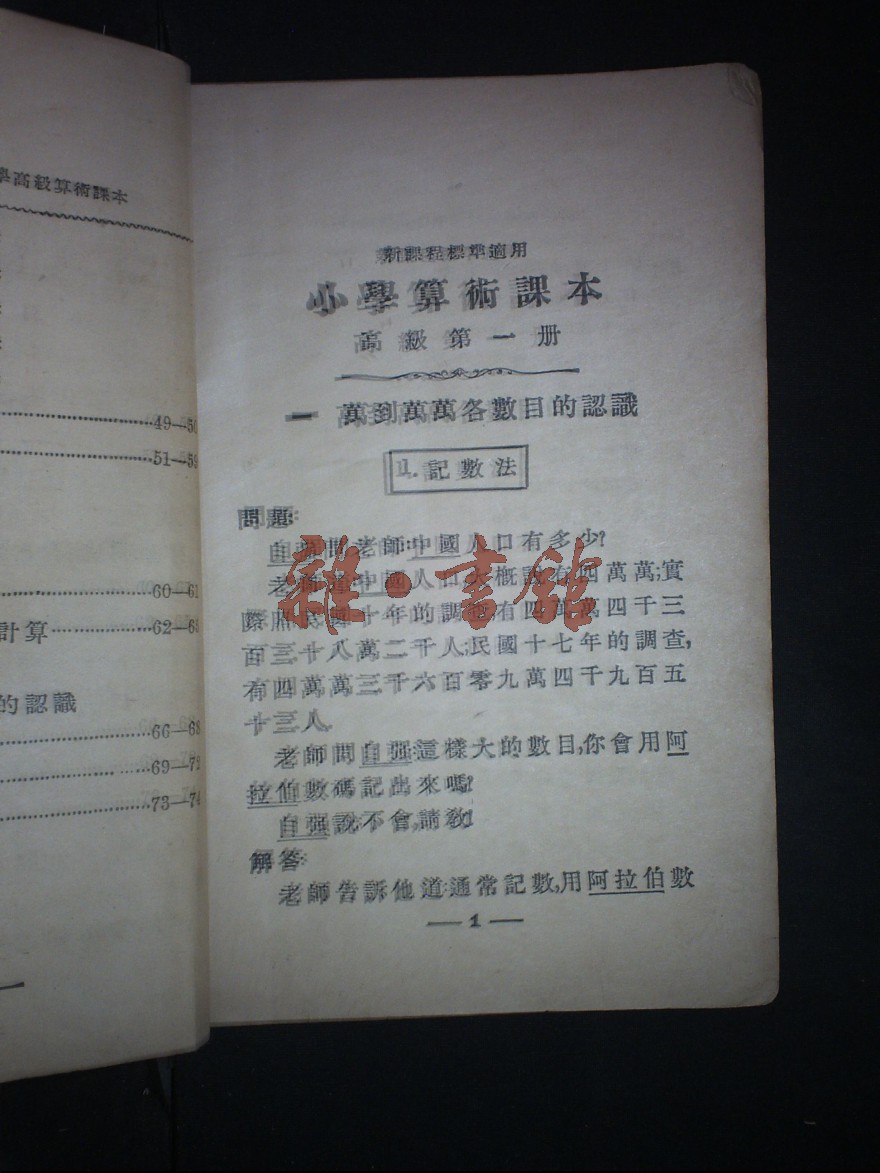 學高級算術課本
49—50
51—59
60—61
計算 62—65
的認識
66—68
69—72
73—74
新課程標準適用
小學算術課本
高級第一册
一 萬到萬萬各數目的認識
1.記數法
問題:
自强問老師:中國人口有多少?
老師道:中國人口大概說有四萬萬;實
際照民國十年的調查有四萬萬四千三
百三十八萬二千人;民國十七年的調查,
有四萬萬三千六百零九萬四千九百五
十三人.
老師問自强:這樣大的數目,你會用阿
拉伯數碼記出來嗎?
自强說:不會,請教!
解答:
老師告訴他道:通常記數,用阿拉伯數
— 1 —
雜·書館